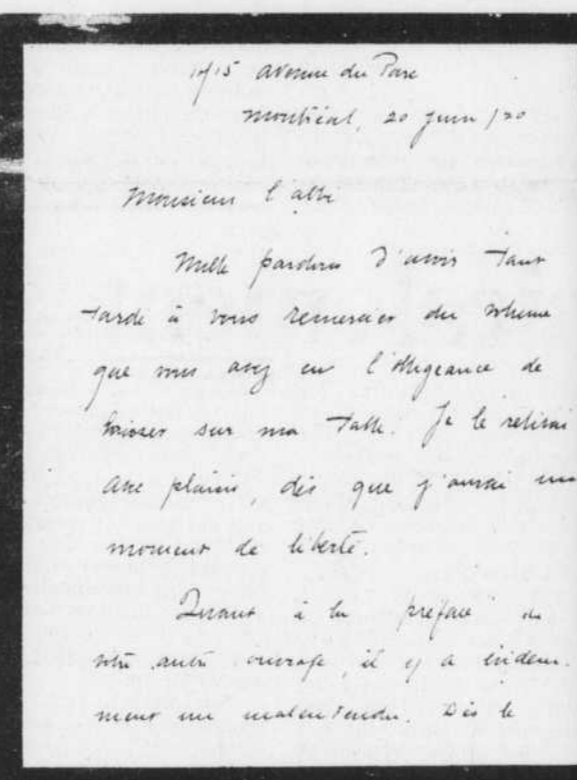 avenue du Parc
Montréal, 20 juin /20
Monsieur l'abbé
Mille pardons d'avoir tant
tardé à vous remercier du volume
que vous avez eu l'obligeance de
laisser sur ma table. Je le relirai
avec plaisir, dès que j'aurai un
moment de liberté.
Quant à la préface de
votre autre ouvrage, il y a évidem-
ment un malentendu. Dès le